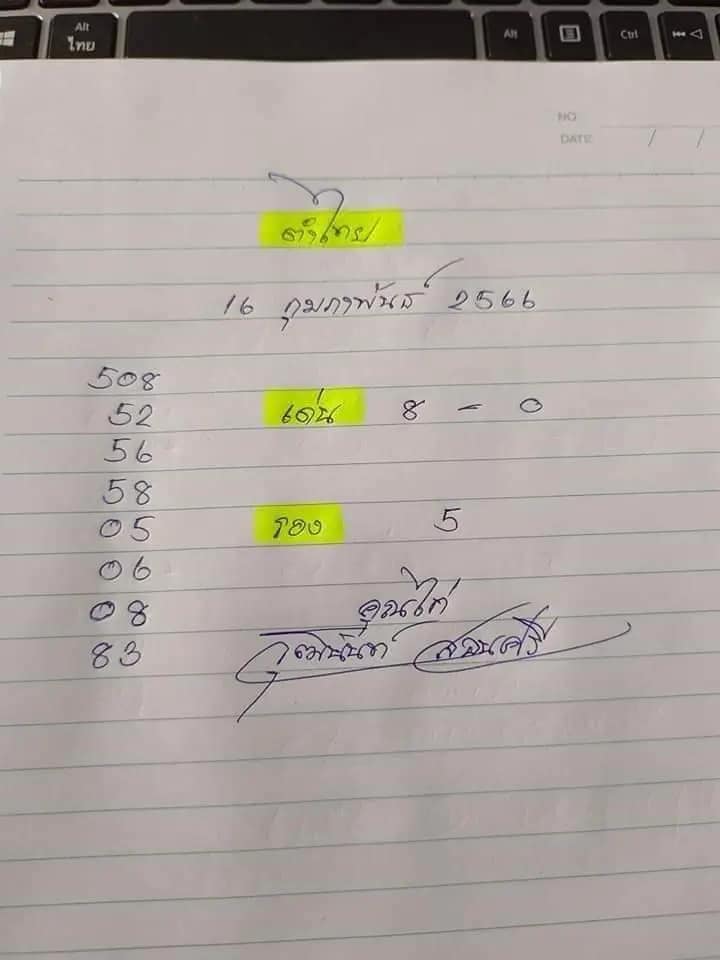 Alt
ไทย
Alt
Ctrl
NO.
DATE / /
ต่ำไทย
16 กุมภาพันธ์ 2566
508
52 เด่น 8 - 0
56
58
05 รอง 5
06
08 คุณไก่
83